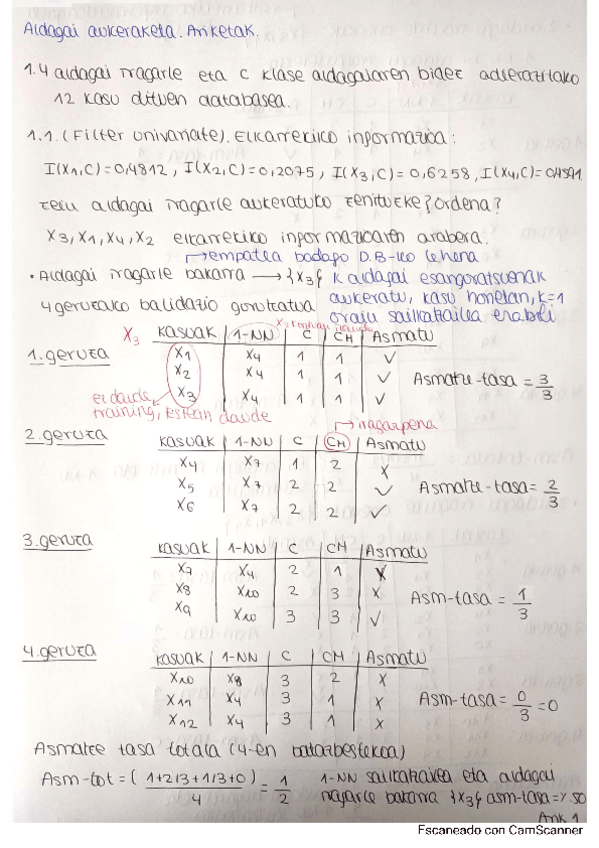 Aldagai aukeraketa. Ariketak.
1. 4 aldagai iragarle eta C klase aldagaiaren bidez adierazitako
12 kasu dituen databasea.
1.1. (Filter univariate). Elkarrekiko informazioa:
I(X1,C)=0,4812, I(X2,C)=0,2075, I(X3,C)=0,6258, I(X4,C)=0,4591.
zein aldagai iragarle aukeratuko zenituzke? Ordena?
X3, X1, X4, X2 elkarrekiko informazioaren arabera.
→ enpatea badago D.B-ko lehena
• Aldagai iragarle bakarra → {X3} k aldagai esanguratsuenak
aukeratu, kasu honetan, k=1
4 geruzako balidazio gurutzatua orain sailkatzailea erabili
X3 kasuak | 1-NN | C | CM | Asmatu
1. geruza X1 | X4 | 1 | 1 | ✓
X2 | X4 | 1 | 1 | ✓ Asmatze-tasa = 3/3
X3 | X4 | 1 | 1 | ✓
ez daude
training, testean daude
→ iragarpena
2. geruza kasuak | 1-NN | C | CM | Asmatu
X4 | X7 | 1 | 2 | x
X5 | X7 | 2 | 2 | ✓ Asmatze-tasa = 2/3
X6 | X7 | 2 | 2 | ✓
3. geruza kasuak | 1-NN | C | CM | Asmatu
X7 | X4 | 2 | 1 | x
X8 | X10 | 2 | 3 | x Asm-tasa = 1/3
X9 | X10 | 3 | 3 | ✓
4. geruza kasuak | 1-NN | C | CM | Asmatu
X10 | X8 | 3 | 2 | x
X11 | X4 | 3 | 1 | x Asm-tasa = 0/3 = 0
X12 | X4 | 3 | 1 | x
Asmatze tasa totala (4-en batazbestekoa)
Asm-tot = (1+2/3+1/3+0)/4 = 1/2 1-NN sailkatzailea eta aldagai
iragarle bakarra {X3} asm-tasa=%50
Ank 1
Escaneado con CamScanner